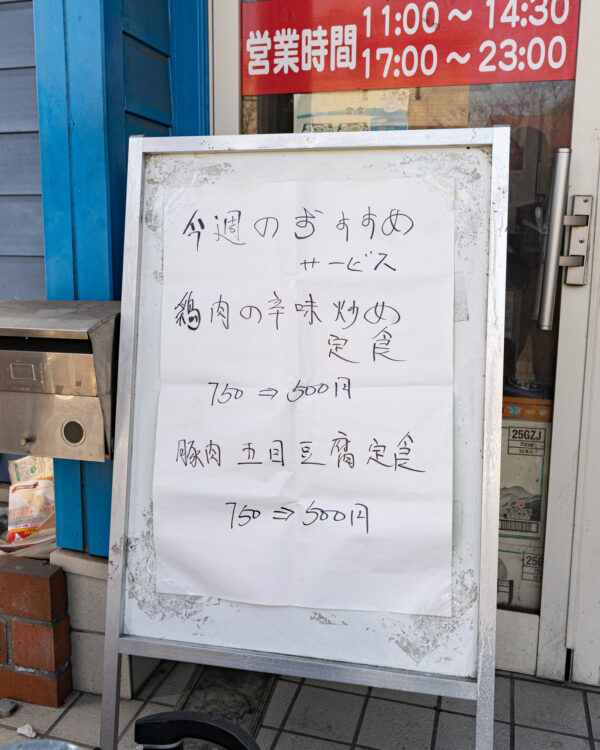 営業時間
11:00～14:30
17:00～23:00
今週のおすすめ
サービス
鶏肉の辛味炒め
定食
750⇒500円
豚肉五目豆腐定食
750⇒500円
25GZJ